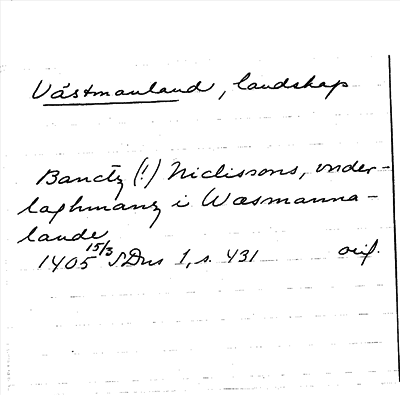 Västmanland, landskap
Banctz (!) Niclissons, vnder-
laghmanz i Wæsmanna-
lande
1405 15/3 SDns 1, s. 431 orig.